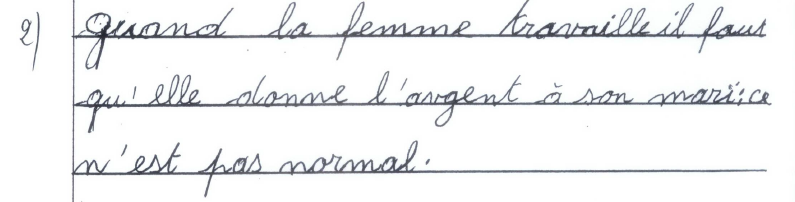 2) Quand la femme travaille il faut
qu'elle donne l'argent à son mari: ce
n'est pas normal.